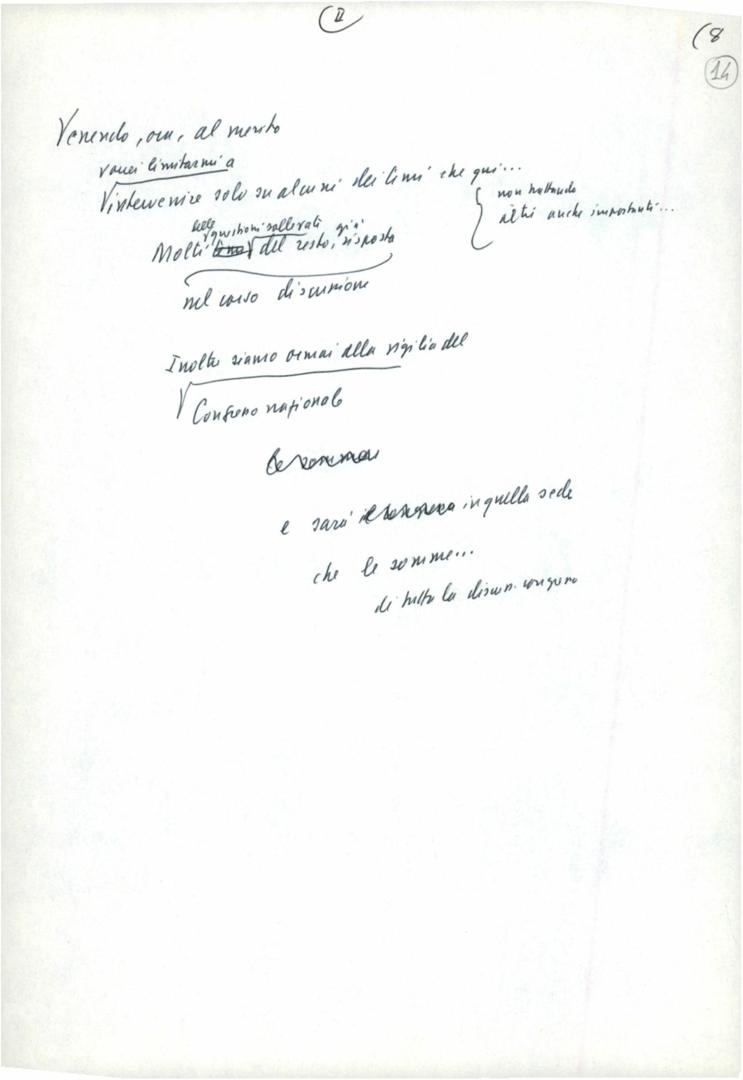 II
(8
14
Venendo, ora, al merito
vorrei limitarmi a
intervenire solo su alcuni dei temi che qui...
non trattando
altri anche importanti...
delle questioni sollevati già
Molti del resto, risposta
nel corso discussione
Inoltre siamo ormai alla vigilia del
Congresso nazionale
e sarà in quella sede
che le somme...
di tutta la discuss. vengono